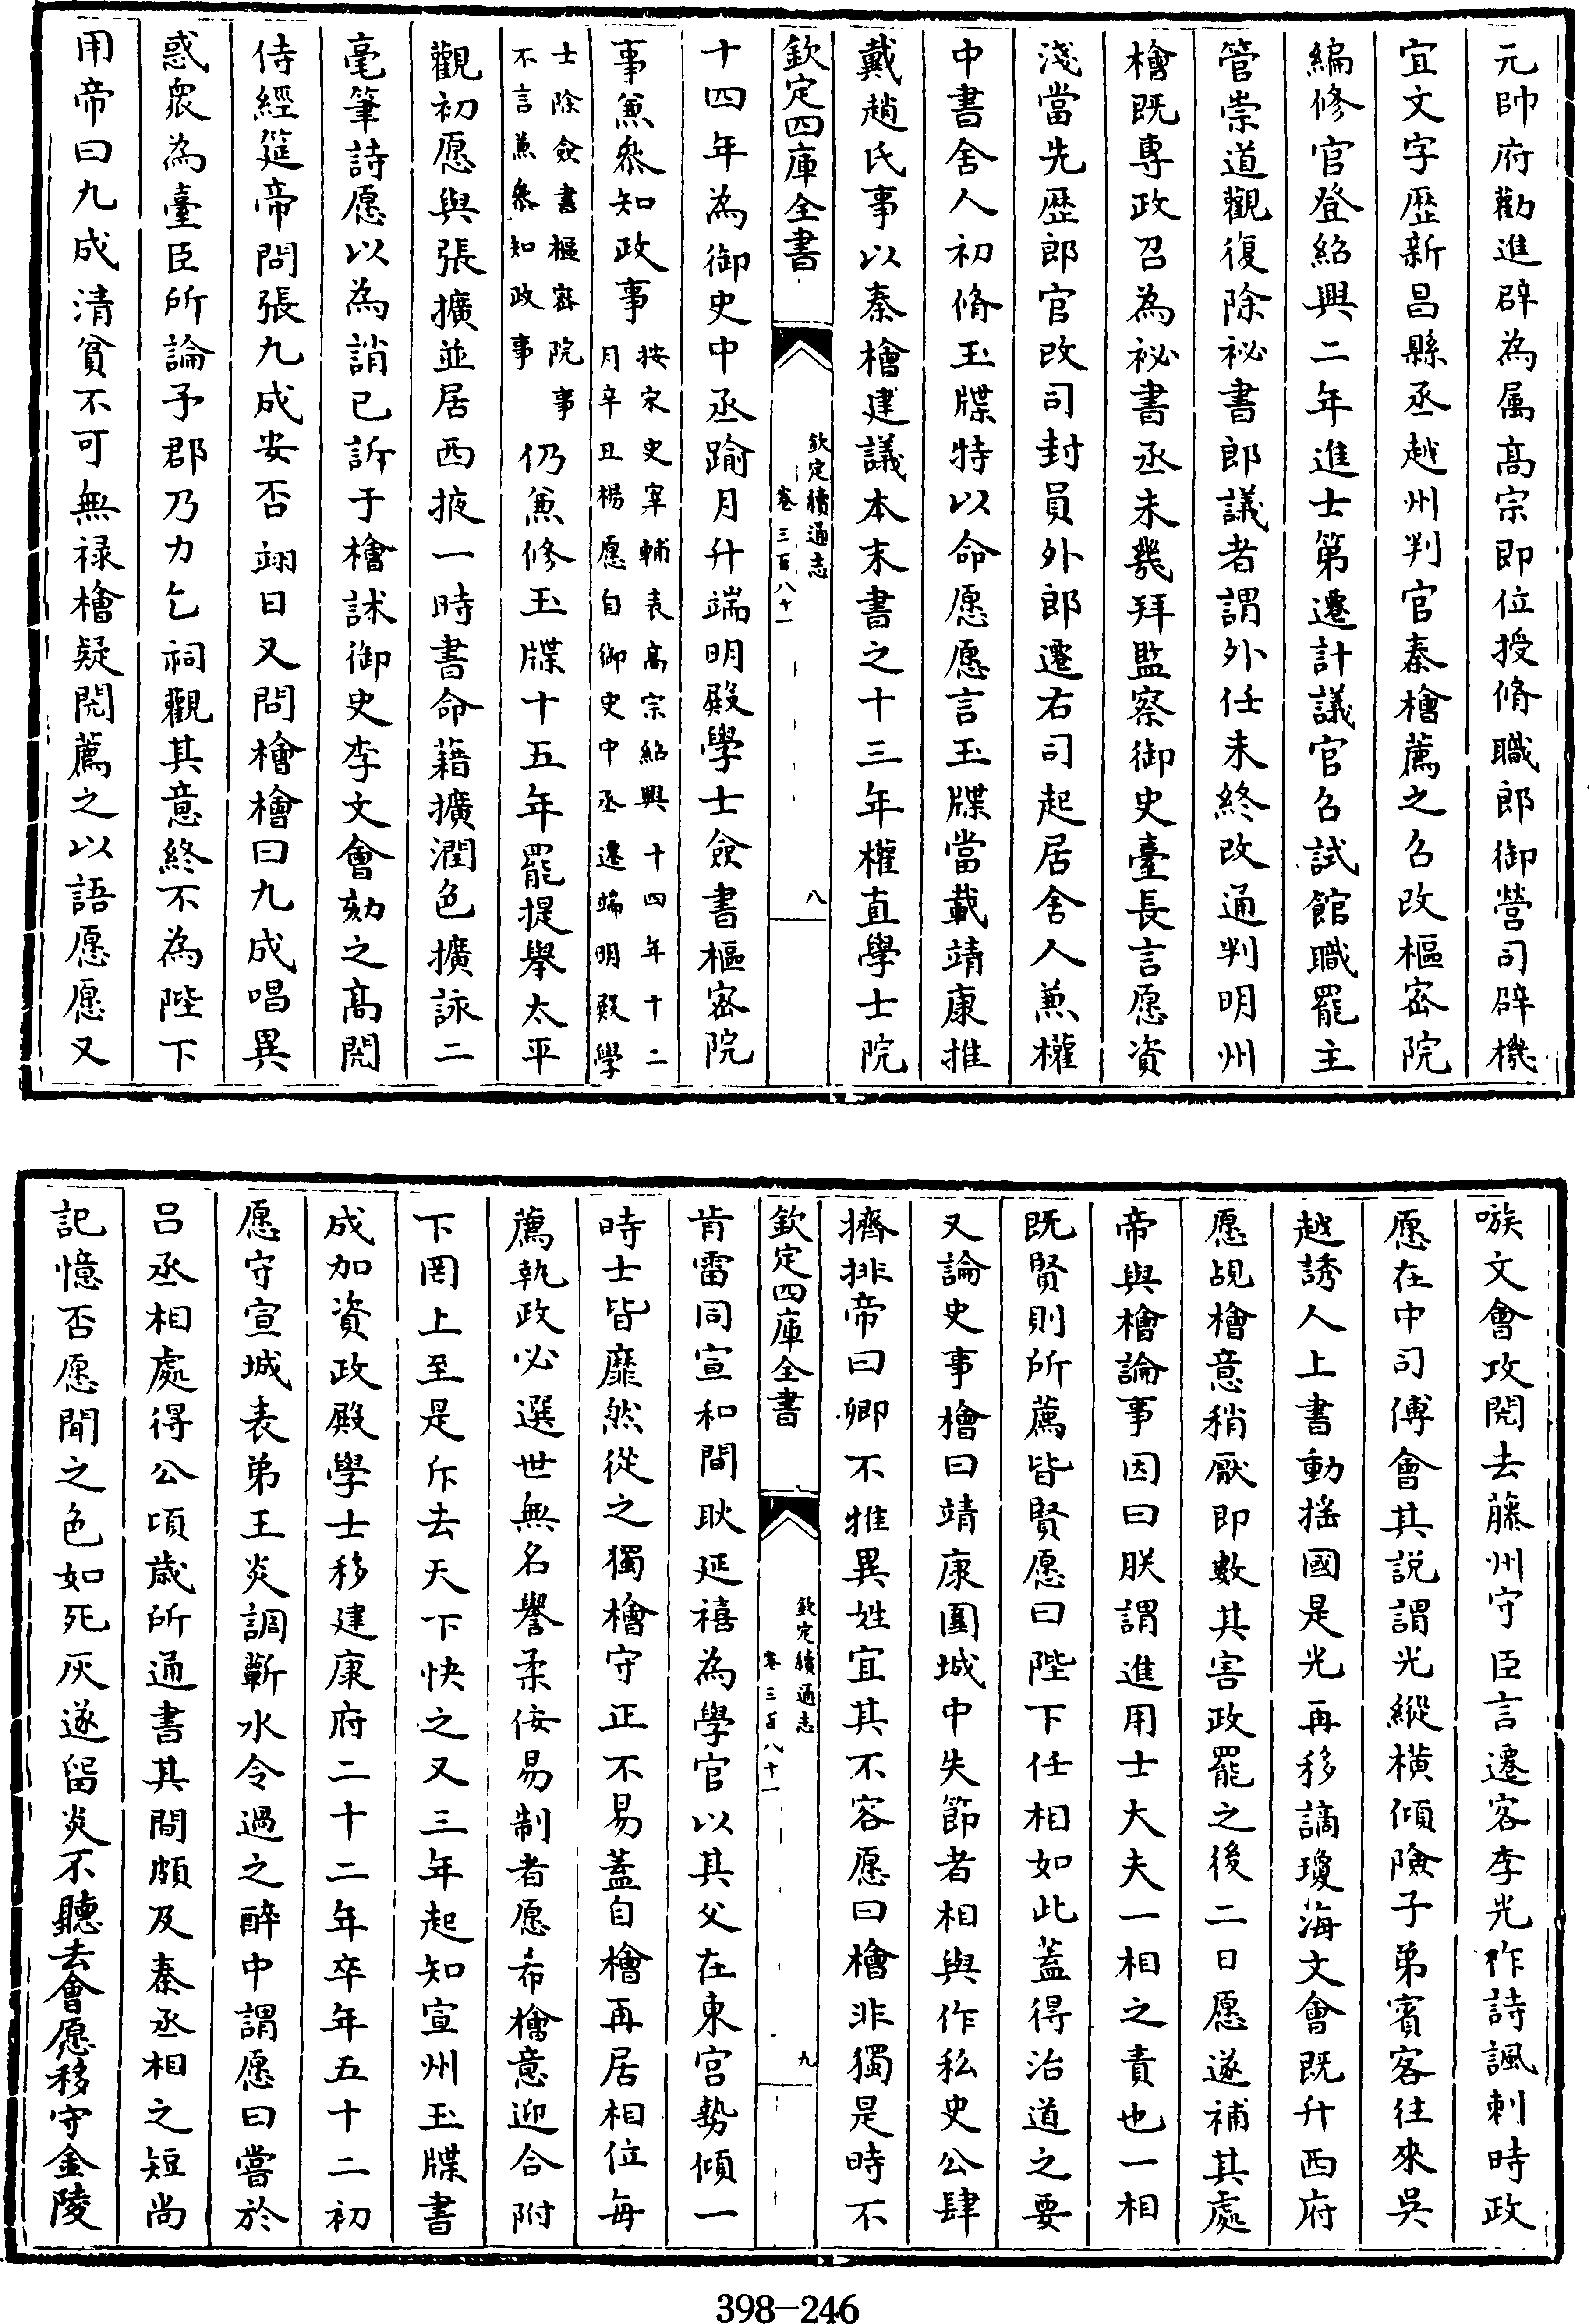 元帥府勸進辟為属高宗即位授脩職郎御營司辟機
宜文字歴新昌縣丞越州判官秦檜薦之召改樞密院
編修官登紹興二年進士第遷計議官召試館職罷主
管崇道觀復除祕書郎議者謂外任未終改通判明州
檜既專政召為祕書丞未幾拜監察御史臺長言愿資
淺當先歴郎官改司封員外郎遷右司起居舍人兼權
中書舍人初脩玉牒特以命愿愿言玉牒當載靖康推
戴趙氏事以秦檜建議本末書之十三年權直學士院
欽定四庫全書
欽定續通志
卷三百八十一
八
十四年為御史中丞踰月升端明殿學士僉書樞密院
事兼叅知政事
按宋史宰輔表高宗紹興十四年十二
月辛丑楊愿自御史中丞遷端明殿學
士除僉書樞密院事
不言兼叅知政事
仍兼修玉牒十五年罷提舉太平
觀初愿與張擴並居西掖一時書命藉擴潤色擴詠二
毫筆詩愿以為誚已訴于檜諷御史李文會劾之高閌
侍經筵帝問張九成安否翊日又問檜檜曰九成唱異
惑衆為臺臣所論予郡乃力乞祠觀其意終不為陛下
用帝曰九成清貧不可無禄檜疑閌薦之以語愿愿又
嗾文會攻閌去藤州守臣言遷客李光作詩諷刺時政
愿在中司傅會其説謂光縱横傾險子弟賓客往來吳
越誘人上書動揺國是光再移謫瓊海文會既升西府
愿覘檜意稍厭即數其害政罷之後二日愿遂補其處
帝與檜論事因曰朕謂進用士大夫一相之責也一相
既賢則所薦皆賢愿曰陛下任相如此蓋得治道之要
又論史事檜曰靖康圍城中失節者相與作私史公肆
擠排帝曰卿不推異姓宜其不容愿曰檜非獨是時不
欽定四庫全書
欽定續通志
卷三百八十一
九
肯雷同宣和間耿延禧為學官以其父在東宫勢傾一
時士皆靡然從之獨檜守正不易蓋自檜再居相位每
薦執政必選世無名譽柔佞易制者愿希檜意迎合附
下罔上至是斥去天下快之又三年起知宣州玉牒書
成加資政殿學士移建康府二十二年卒年五十二初
愿守宣城表弟王炎調蘄水令過之醉中謂愿曰嘗於
吕丞相處得公頃歲所通書其間頗及秦丞相之短尚
記憶否愿聞之色如死灰遂留炎不聽去會愿移守金陵
398-246